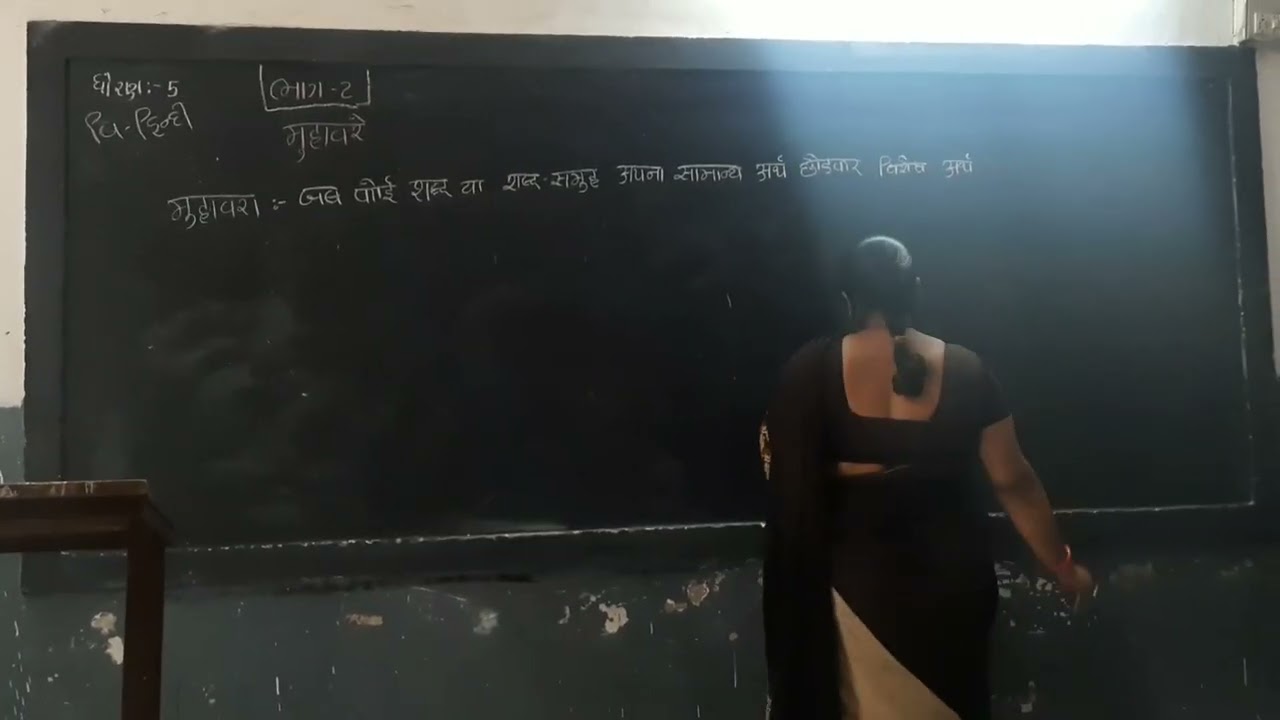 धोरण:- 5
भाग-2
वि-हिन्दी
मुहावरे
मुहावरा :- जब कोई शब्द या शब्द-समुह अपना सामान्य अर्थ छोडकर विशेष अर्थ